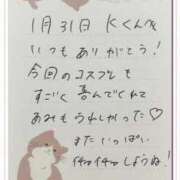 1月31日 Kくんへ
いつもありがとう!
今回のコスプレも
すごく喜んでくれて
あみもうれしかった♡
またいっぱい
イチャイチャしようね!